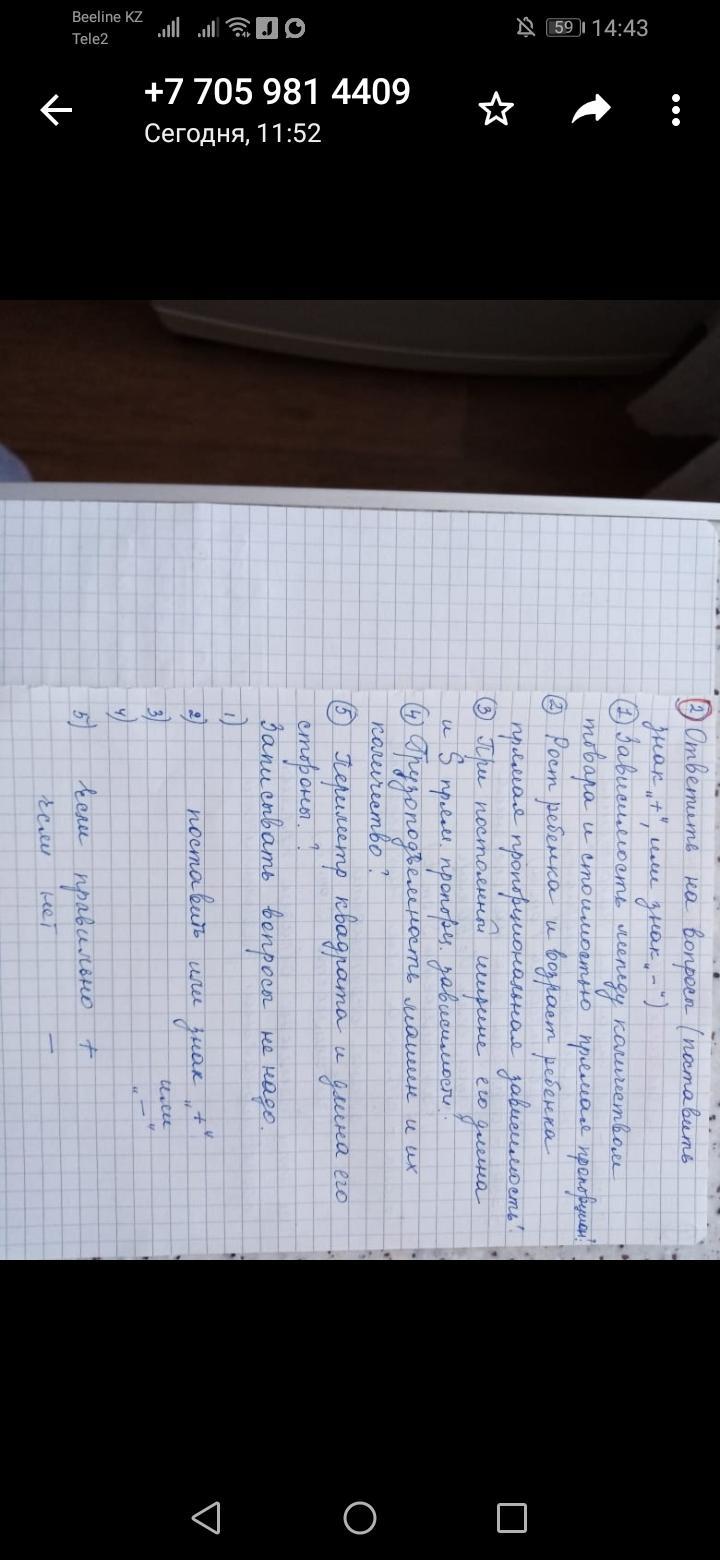 Beeline KZ
Tele2
59
14:43
+7 705 981 4409
Сегодня, 11:52
② Ответить на вопросы (поставить
знак „+“, или знак „-“)
① Зависимость между количеством
товара и стоимостью прямая пропорцион!
② Рост ребенка и возраст ребенка
прямая пропорциональная зависимость!
③ При постоянной ширине его длина
и S прям. пропорц. зависимости.
④ Грузоподъемность машин и их
количество?
⑤ Периметр квадрата и длина его
стороны.?
Записывать вопросы не надо.
1)
2) поставить или знак „+“
3) или
4) „—“
5) Если правильно +
Если нет —